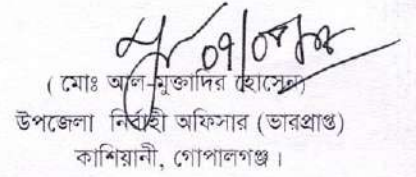 ( মোঃ আল-মুক্তাদির হোসেন)
উপজেলা নির্বাহী অফিসার (ভারপ্রাপ্ত)
কাশিয়ানী, গোপালগঞ্জ।